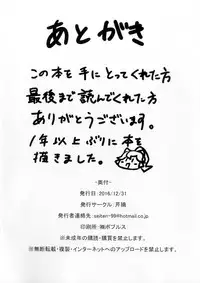 あとがき
この本を手にとってくれた方
最後まで読んでくれた方
ありがとうございます。
1年以上ぶりに本を
描きました。
-奥付-
発行日:2016/12/31
発行サークル:芹摘
印刷所:㈱ポプルス
※未成年の購読・購買を禁止します。
※無断転載・複製・インターネットへのアップロードを禁止します。